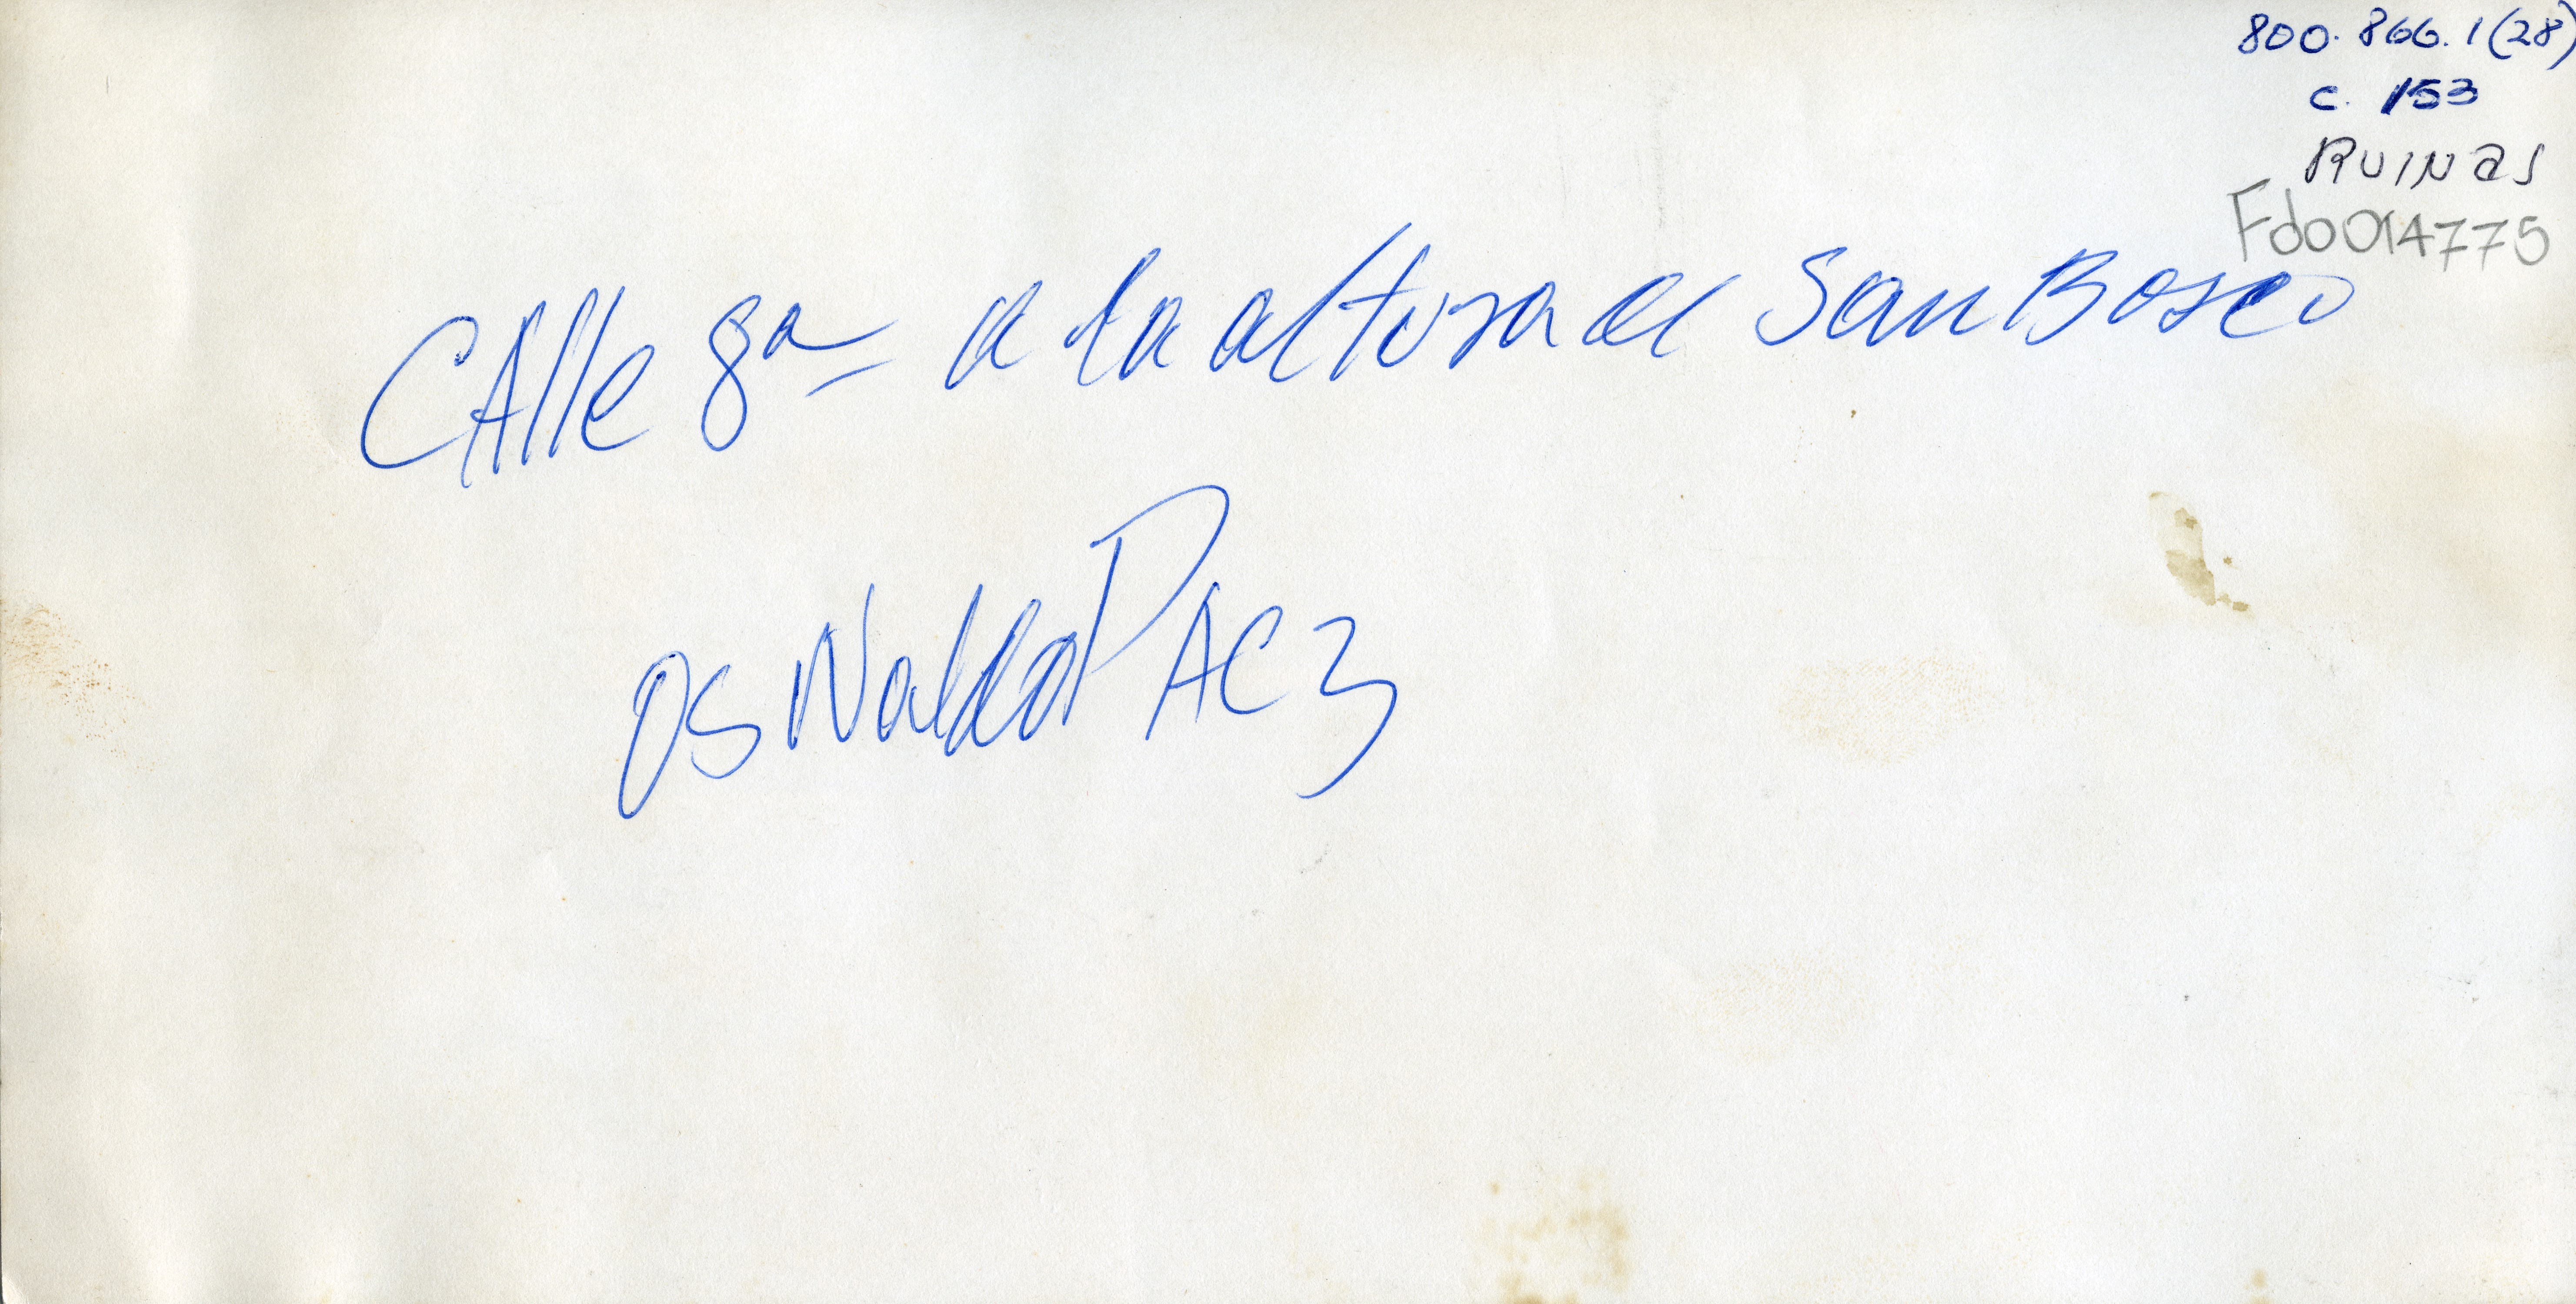 800.866.1(28)
c. 153
RUINas
Fdo014775
CAlle 8a a la altura de San Bosco
OSWaldo PAez